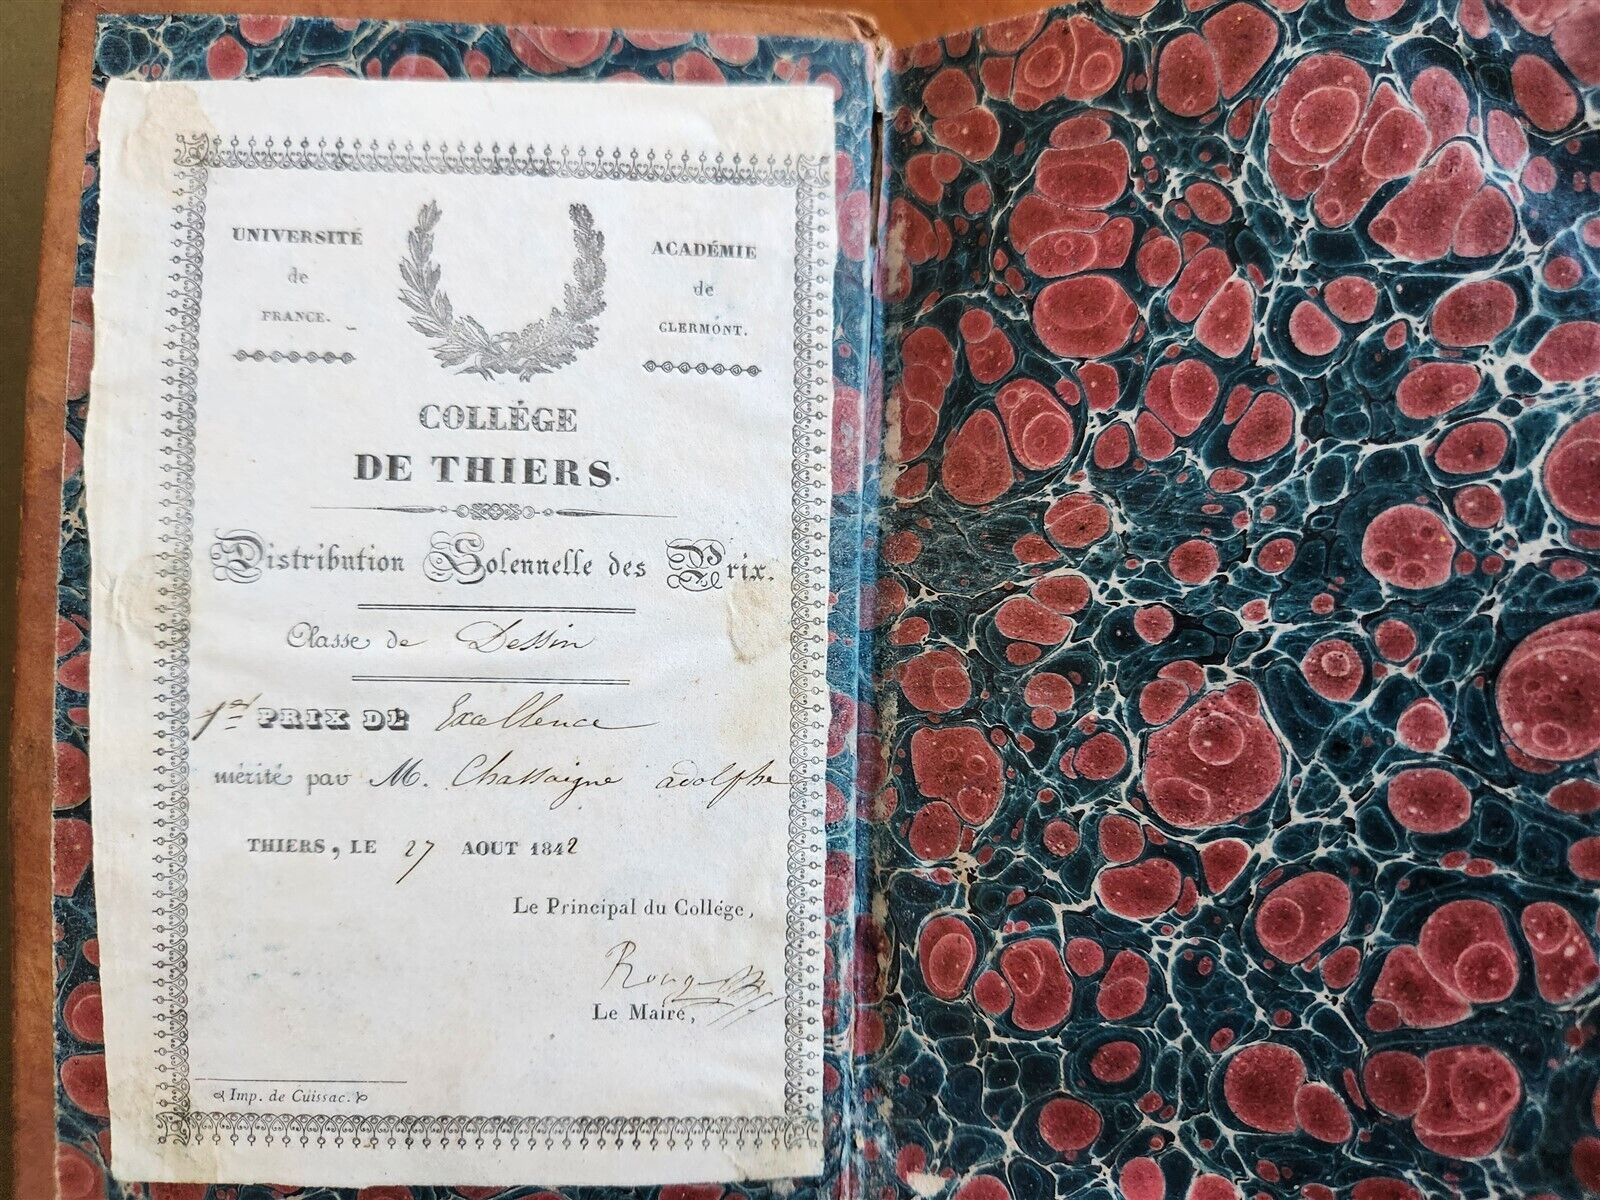 UNIVERSITÉ
de
FRANCE.
ACADÉMIE
de
CLERMONT.
COLLÉGE
DE THIERS.
Distribution Solennelle des Prix.
Classe de Dessin
1er PRIX DE Excellence
mérité par M. Chassaigne adolphe
THIERS, LE 27 AOUT 1842
Le Principal du Collége,
Le Maire,
Imp. de Cuissac.